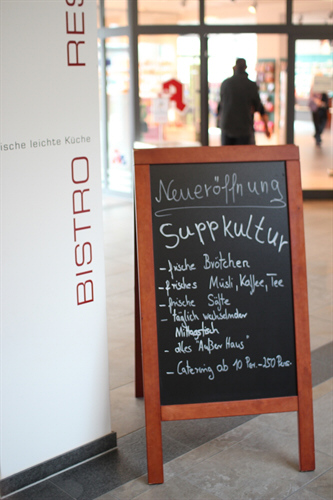 RES
ische leichte Küche
BISTRO
Neueröffnung
Suppkultur
- frische Brötchen
- frisches Müsli, Kaffee, Tee
- frische Säfte
- täglich wechselnder
Mittagstisch
- alles "Außer Haus"
- Catering ab 10 Per. - 250 Pers.